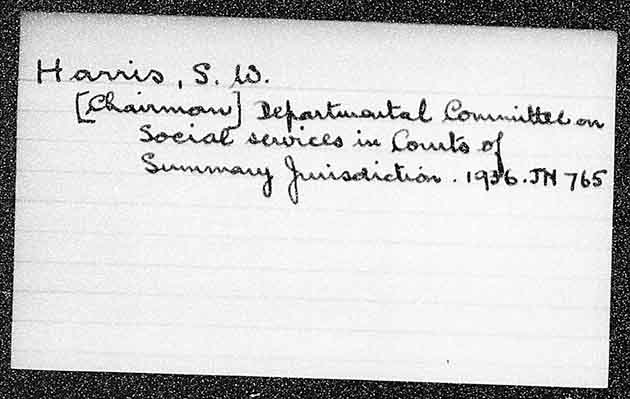 Harris, S. W.
[Chairman] Departmental Committee on
Social services in Courts of
Summary Jurisdiction. 1936. JN 765